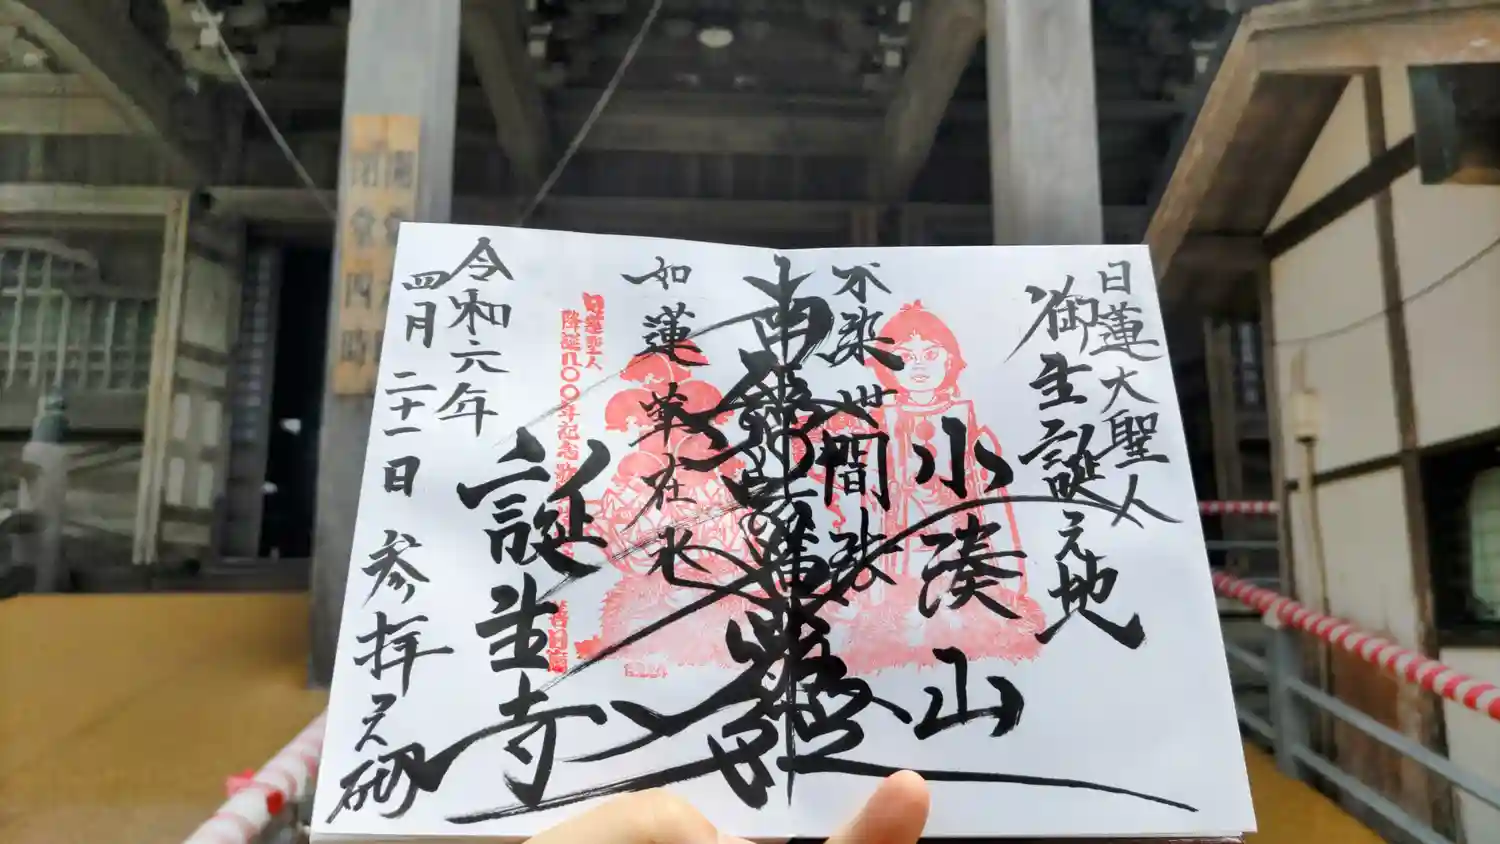 日蓮大聖人
御生誕之地
小湊山
不染世間法
南無妙法蓮華経
如蓮華在水
日蓮聖人
誕生寺
令和六年
四月二十一日 参拝之砌
閉堂四時